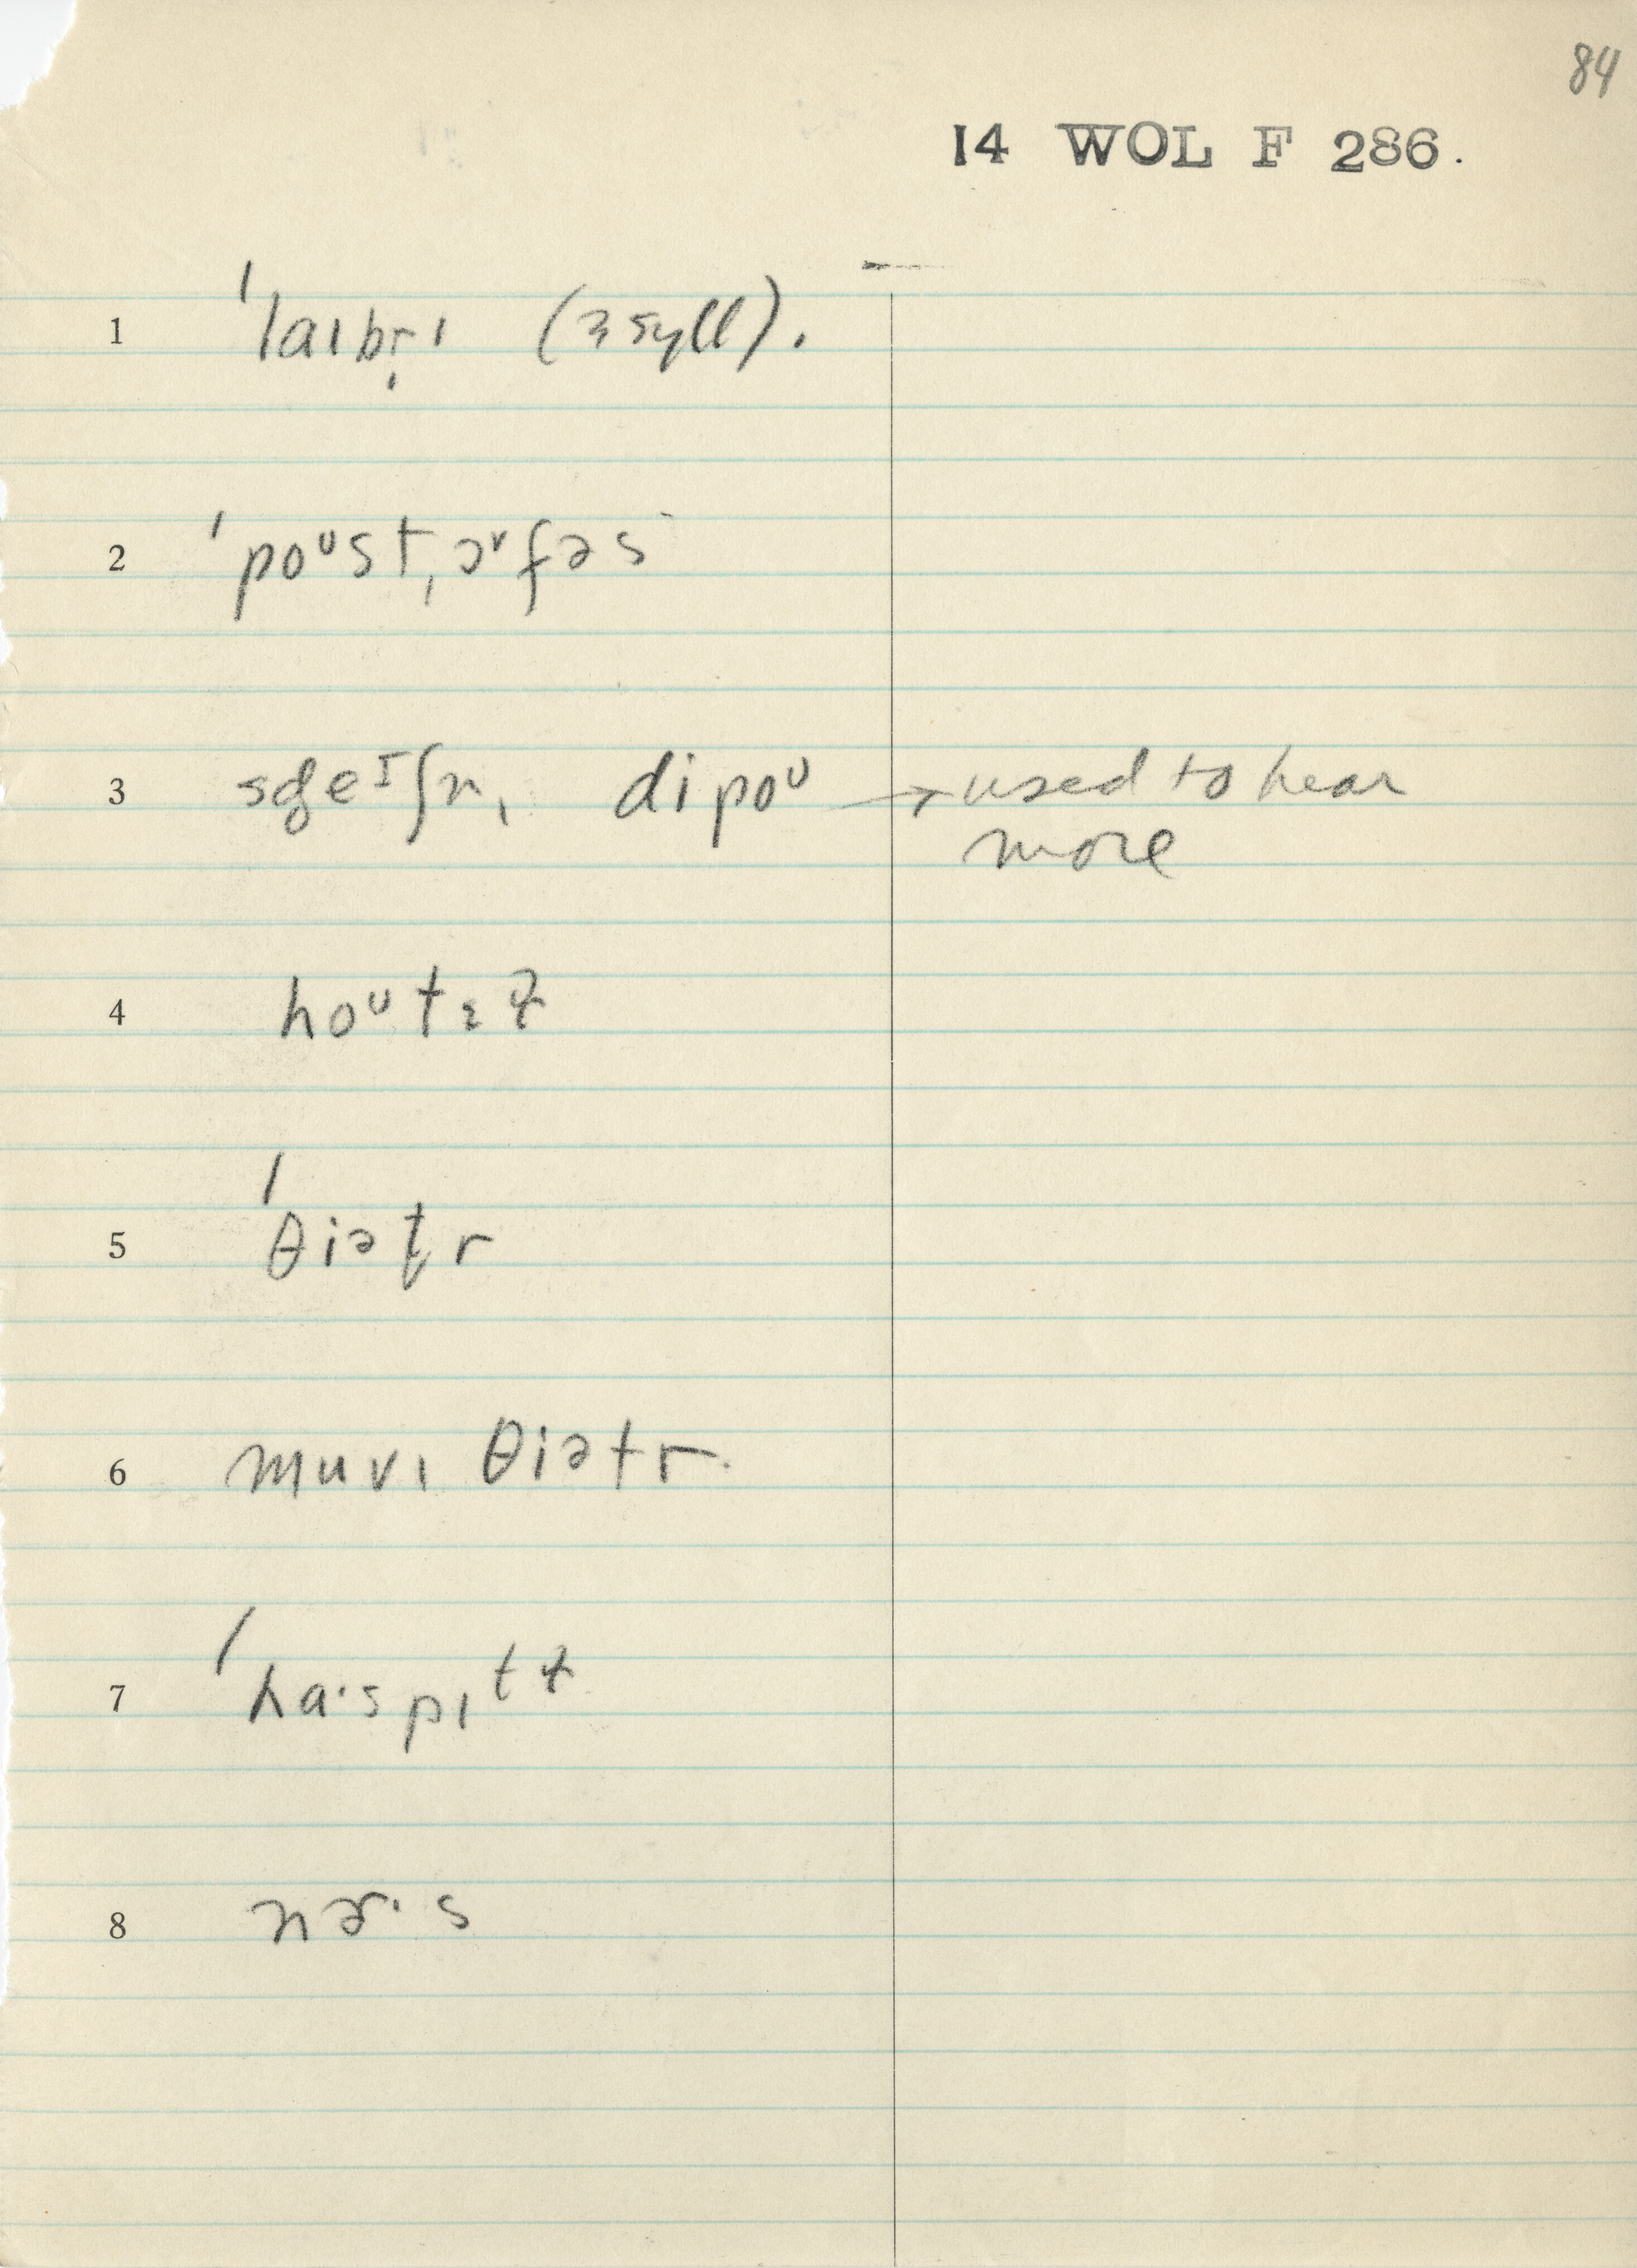 84
14 WOL F 286.
1 ˈlaɪbr̩ɪ (3 syll).
2 ˈpoᶷstˌɔᵛfəs
3 sdeᴵʃn, dipoᶷ → used to hear
more
4 hoᶷtɛɫ
5 ˈθiət̬r
6 muvɪ θiətr.
7 ˈhɑ·spɪtɫ
8 nɚ·s